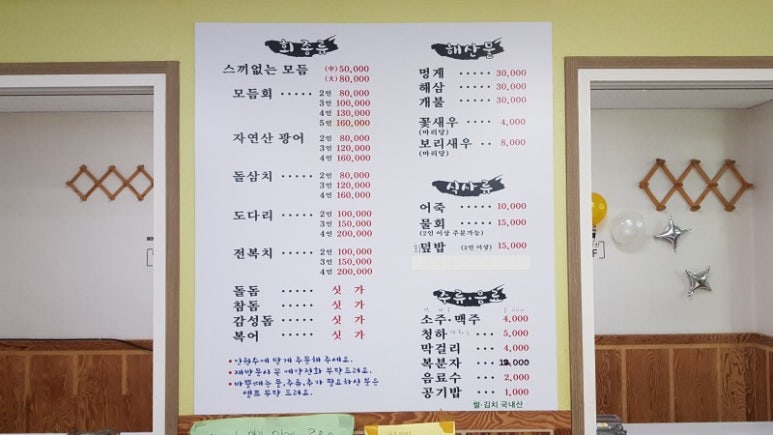 회 종류
스끼없는 모듬 (中) 50,000
(大) 80,000
모듬회 ····· 2인 80,000
3인 100,000
4인 130,000
5인 160,000
자연산 광어 2인 80,000
3인 120,000
4인 160,000
돌삼치 ···· 2인 80,000
3인 120,000
4인 160,000
도다리 ···· 2인 100,000
3인 150,000
4인 200,000
전복치 ···· 2인 100,000
3인 150,000
4인 200,000
돌돔 ····· 싯 가
참돔 ····· 싯 가
감성돔 ···· 싯 가
복어 ····· 싯 가
• 인원수에 맞게 주문해 주세요.
• 재방문시 꼭 예약전화 부탁드려요.
• 바쁠때는 물,주류,추가 필요하신 분은
셀프 부탁 드려요.
해산물
멍게 ····· 30,000
해삼 ····· 30,000
개불 ····· 30,000
꽃새우 ··· 4,000
(마리당)
보리새우 ·· 8,000
(마리당)
식사류
어죽 ····· 10,000
물회 ····· 15,000
(2인 이상 주문가능)
회덮밥 (2인 이상) 15,000
주류·음료
소주·맥주 4,000
청하 ··· 5,000
막걸리 ··· 4,000
복분자 ···
음료수 ··· 2,000
공기밥 ··· 1,000
쌀·김치 국내산